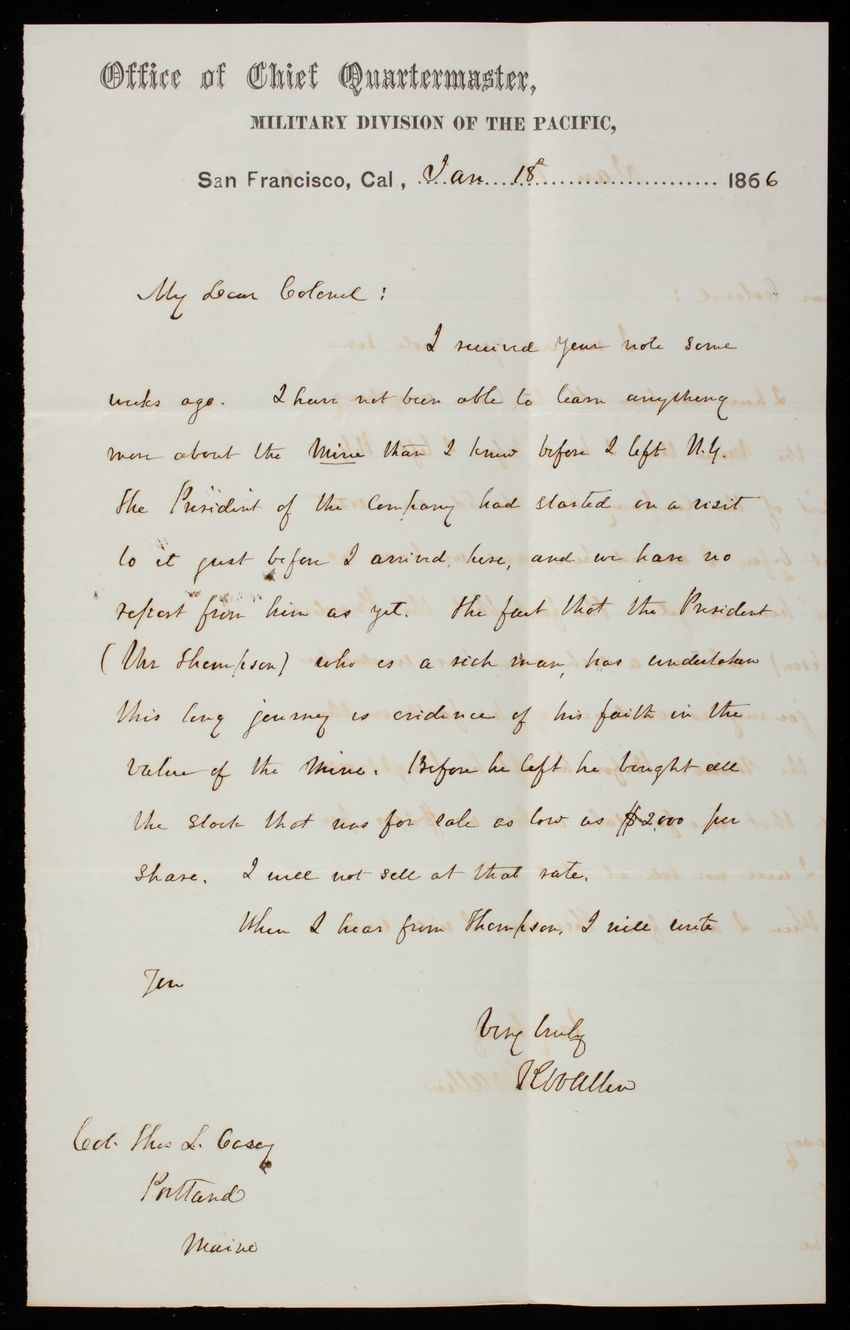 Office of Chief Quartermaster,
MILITARY DIVISION OF THE PACIFIC,
San Francisco, Cal., Jan 18th 1866
My Dear Colonel :
I received your note some
weeks ago. I have not been able to learn anything
more about the Mine than I knew before I left N.Y.
The President of the Company had started on a visit
to it just before I arrived, here, and we have no
report from him as yet. The fact that the President
(Mr Thompson) who is a rich man, has undertaken
this long journey is evidence of his faith in the
value of the Mine. Before he left he bought all
the stock that was for sale as low as $2,000 per
share. I will not sell at that rate.
When I hear from Thompson, I will write
you
Very truly
R Allen
Col. Thos L. Casey
Portland
Maine